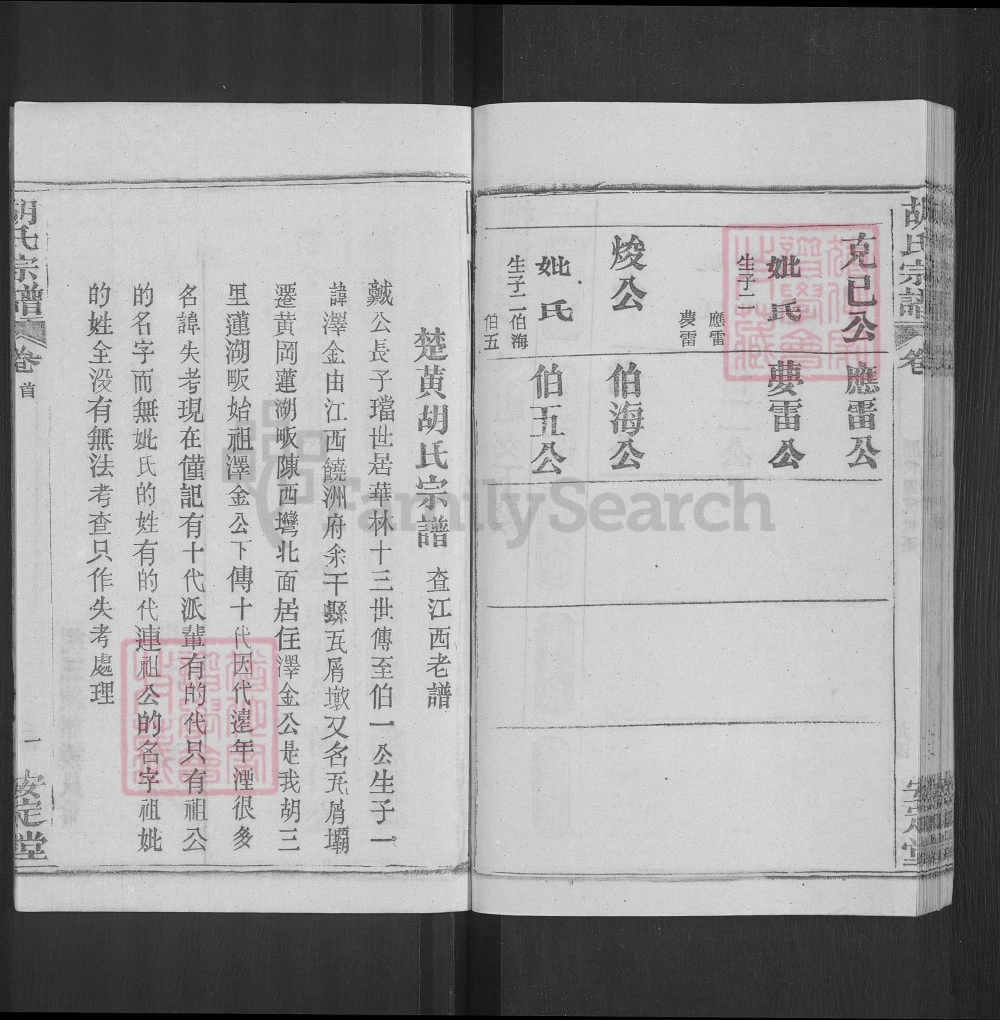 胡氏宗譜 卷
安定堂
克已公
妣氏
生子二
應雷
夢雷
焌公
妣氏
生子二伯海
伯五
應雷公
夢雷公
伯海公
伯五公
楚黃胡氏宗譜 查江西老譜
公長子璫世居華林十三世傳至伯一公生子一
諱澤金由江西饒洲府余干縣瓦屑墩又名瓦屑壩
遷黃岡蓮湖畈陳西塆北面居住澤金公是我胡三
里蓮湖畈始祖澤金公下傳十代因代遠年湮很多
名諱失考現在僅記有十代派輩有的代只有祖公
的名字而無妣氏的姓有的代連祖公的名字祖妣
的姓全没有無法考查只作失考處理
胡氏宗譜 卷首
一
安定堂
FamilySearch